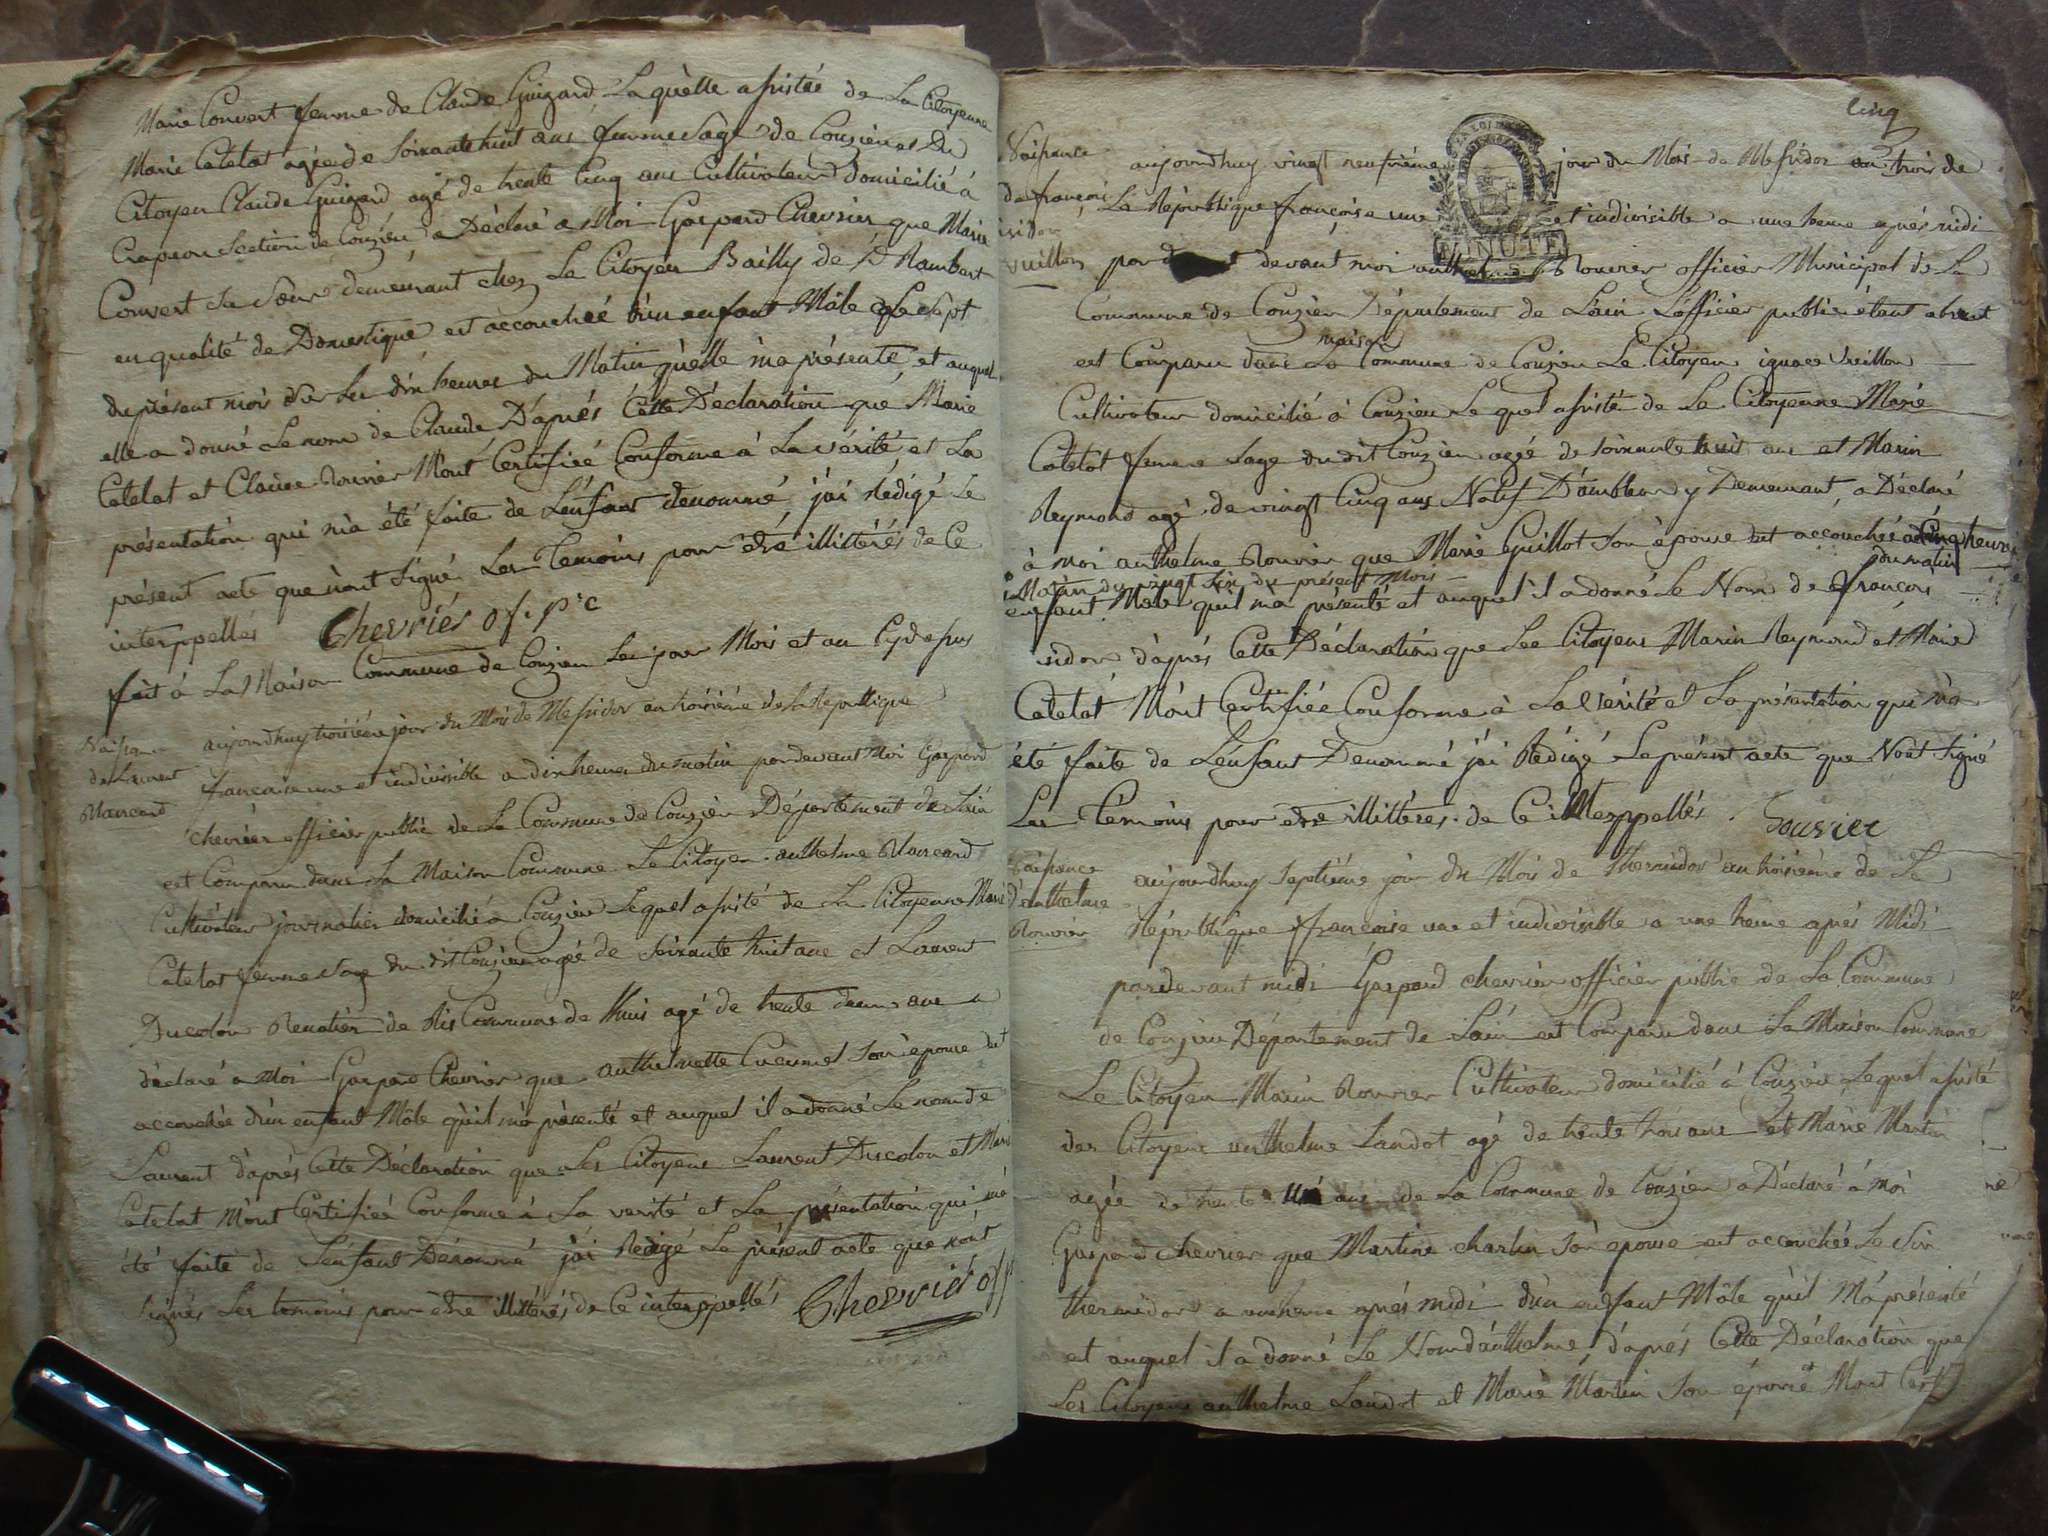 Marie Convert femme de Claude Guigard Laquelle assistée de La Citoyenne
Marie Catelat agée de soixante huit ans femme sage de Couzieu et Du
Citoyen Claude Guigard agé de trente Cinq ans Cultivateur domicilié à
Crapeou Section de Couzieu a Déclaré a Moi Gaspard Chevrier que Marie
Convert Sa Sœur demeurant chez Le Citoyen Bailly de St Rambert
en qualité de Domestique est accouchée d'un enfant Mâle Le sept
du présent mois à dix heures du Matin quelle m'a présenté, et auquel
elle a donné Le nom de Claude D'après Cette Déclaration que Marie
Catelat et Claude M'ont Certifiée Conforme à La vérité et La
présentation qui m'a été faite de L'enfant denommé j'ai Rédigé Le
présent acte que n'ont Signé Les Temoins pour être illitérés de Ce
interppellés Chevriér of. pic
fait à La Maison Commune de Couzieu Les jour Mois et an Cydessus
Naissance
de Laurent
Marcand
aujourdhuy troisiéme jour du Mois de Messidor an troisiéme de la Republique
francaise une et indivisible a dix heures du matin pardevant Moi Gaspard
chevrier officier public de La Commune de Couzieu Département de L'ain
est Comparu dans La Maison Commune Le Citoyen anthelme Marcand
Cultivateur journalier domicilié a Couzieu Lequel assisté de La Citoyenne Marie
Catelat femme Sage du dit Couzieu agée de Soixante huit ans et Laurent
Ducolon de Ris Commune de agé de trente deux ans a
déclaré a Moi Gaspard Chevrier que anthelmette son épouse est
accouchée d'un enfant Mâle qu'il m'a présenté et auquel il a donné Le nom de
Laurent d'après Cette Déclaration que Les Citoyens Laurent Ducolon et Marie
Catelat M'ont Certifiée Conforme a La verité et La présentation qui m'a
été faite de L'enfant Dénommé j'ai Redigé Le présent acte que n'ont
signés Les temoins pour être illitérés de Ce interppellés Chevrier off
Cinq
MINUTE
Naissance
de françois
isidore
vuillon
aujourdhuy vingt neufviéme jour du Mois de Messidor an trois de
La République françoise une et indivisible a une heure après midi
par devant moi anthelme Rouvier officier Municipal de La
Commune de Couzieu Département de L'ain L'officier public étant absent
est Comparu dans La maison Commune de Couzieu Le Citoyen ignace vuillon
Cultivateur domicilié à Couzieu Lequel assisté de La Citoyenne Marie
Catelat femme sage du dit Couzieu agée de soixante huit ans et Marin
Reymond agé de vingt Cinq ans Natif D'ambleon y Demeurant, a Déclaré
à moi anthelme Rouvier que Marie Guillot Son épouse est accouchée à Cinq heures
du matin
Matin du vingt six du présent Mois
enfant Mâle qu'il m'a présenté et auquel il a donné Le Nom de françois
isidore d'après Cette Déclaration que Les Citoyens Marin Reymond et Marie
Catelat M'ont Certifiée Conforme à La vérité et La présentation qui m'a
été faite de L'enfant Denommé j'ai Rédigé Le présent acte que N'ont Signé
Les Témoins pour être illitérés de Ce interppellés. Rouvier
Naissance
d'anthelme
Rouvier
aujourdhuy Septiéme jour du Mois de thermidor an troisiéme de La
République française une et indivisible a une heure après Midi
pardevant midi Gaspard chevrier officier public de La Commune
de Couzieu Département de L'ain est Comparu dans La Maison Commune
Le Citoyen Marin Rouvier Cultivateur domicilié à Couzieu Lequel assisté
des Citoyens anthelme Landot agé de trente trois ans et Marie Martin
agée de trente ans de La Commune de Couzieu a Déclaré à moi
Gaspard chevrier que Martine charlin Son épouse est accouchée Le Six
thermidor a une heure après midi d'un enfant Mâle qu'il M'a présenté
et auquel il a donné Le Nom d'anthelme, d'après Cette Déclaration que
Les Citoyens anthelme Landot et Marie Martin Son épouse M'ont Certif